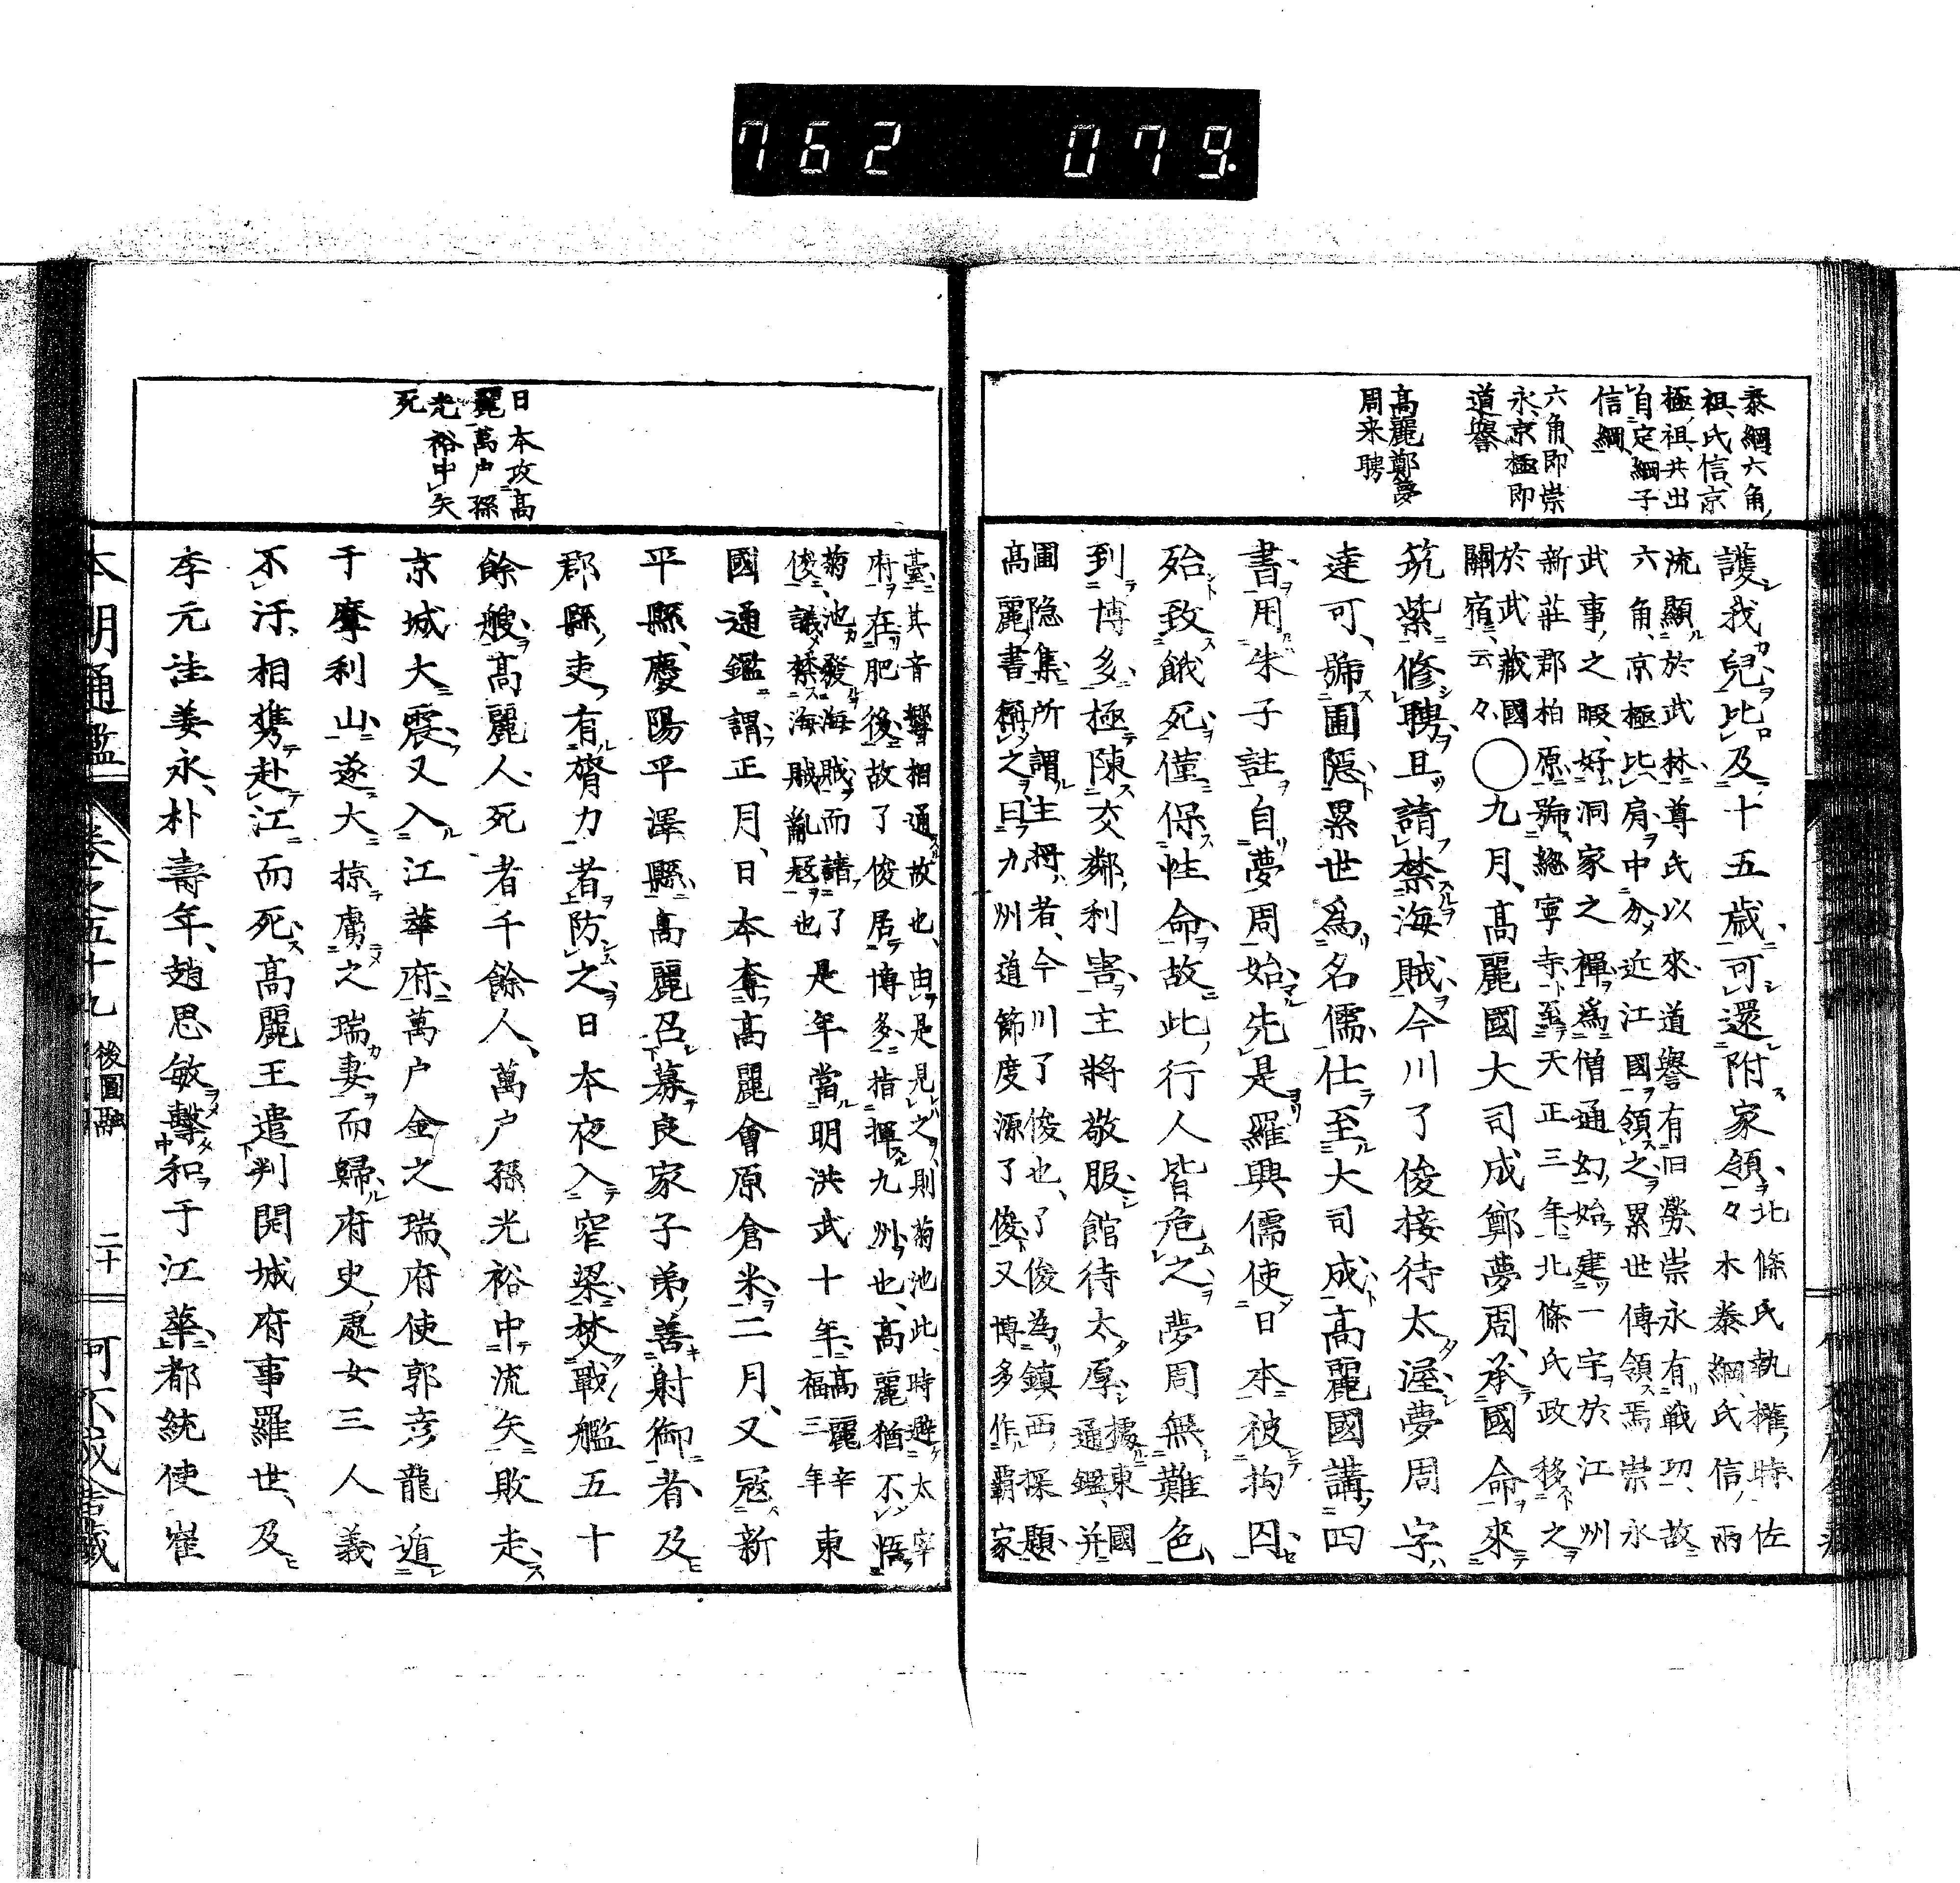 762 079.
泰綱六角
祖氏信京
極祖共出
自定綱子
信綱
六角即崇
永京極即
道譽
高麗鄭夢
周来聘
護我兒比及十五歳可還附家領々
北條氏執權時佐
木泰綱氏信兩
流顯於武林尊氏以來道譽有旧勞崇永有戦功故
六角京極比肩中分近江國領之累世傳領焉崇永
武事之暇好洞家之禪為僧通幻始建一宇於江州
新莊郡柏原號總寧寺至天正三年北條氏政移之
於武藏國
關宿云々
○九月高麗國大司成鄭夢周承國命來
筑紫修聘且請禁海賊今川了俊接待太渥夢周字
達可號圃隠累世為名儒仕至大司成高麗國講四
書用朱子註自夢周始先是羅興儒使日本被拘囚
殆致餓死僅保性命故此行人皆危之夢周無難色
到博多極陳交鄰利害主將敬服館待太厚
據東國
通鑑并
圃隠集所謂主將者今川了俊也了俊為鎮西探題
高麗書稱之曰九州道節度源了俊又博多作霸家
臺其音響相通故也由是見之則菊池此時避太宰
府在肥後故了俊居博多指揮九州也高麗猶不悟
菊池發海賊而請了
俊議禁海賊亂冦也
是年當明洪武十年
高麗辛
福三年
東
國通鑑謂正月日本奪高麗會原倉米二月又冦新
平縣慶陽平澤縣高麗召募良家子弟善射御者及
郡縣吏有膂力者防之日本夜入窄梁焚戰艦五十
餘艘高麗人死者千餘人萬户孫光裕中流矢敗走
京城大震又入江華府萬户金之瑞府使郭彦龍遁
于摩利山遂大掠虜之瑞妻而歸府史處女三人義
不汙相携赴江而死高麗王遣判開城府事羅世及
李元詿姜永朴壽年趙思敏擊和于江華都統使崔
日本攻高
麗萬户孫
光裕中矢
死
本朝通鑑
卷之五十九
後圓融
二十